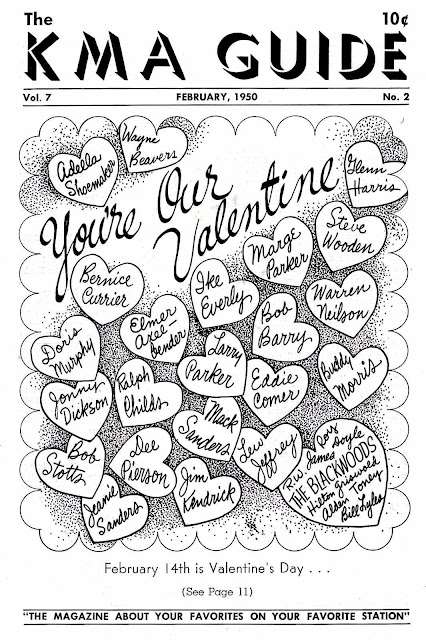 The 10¢
KMA GUIDE
Vol. 7 FEBRUARY, 1950 No. 2
Adella
Shoemaker
Wayne
Beavers
Glenn
Harris
You're Our
Valentine
Steve
Wooden
Marge
Parker
Bernice
Currier
Ike
Everly
Warren
Neilson
Elmer
Axel-
bender
Bob
Barry
Doris
Murphy
Larry
Parker
Buddy
Morris
Jonny
Dickson
Ralph
Childs
Eddie
Comer
Mack
Sanders
Bob
Stotts
Dee
Pierson
Lew
Jeffrey
Jeanie
Sanders
Jim
Kendrick
R.W. James Cory Doyle
THE BLACKWOODS
Hilton Griswold
Alden Toney
Bill Lyles
February 14th is Valentine's Day . . .
(See Page 11)
"THE MAGAZINE ABOUT YOUR FAVORITES ON YOUR FAVORITE STATION"